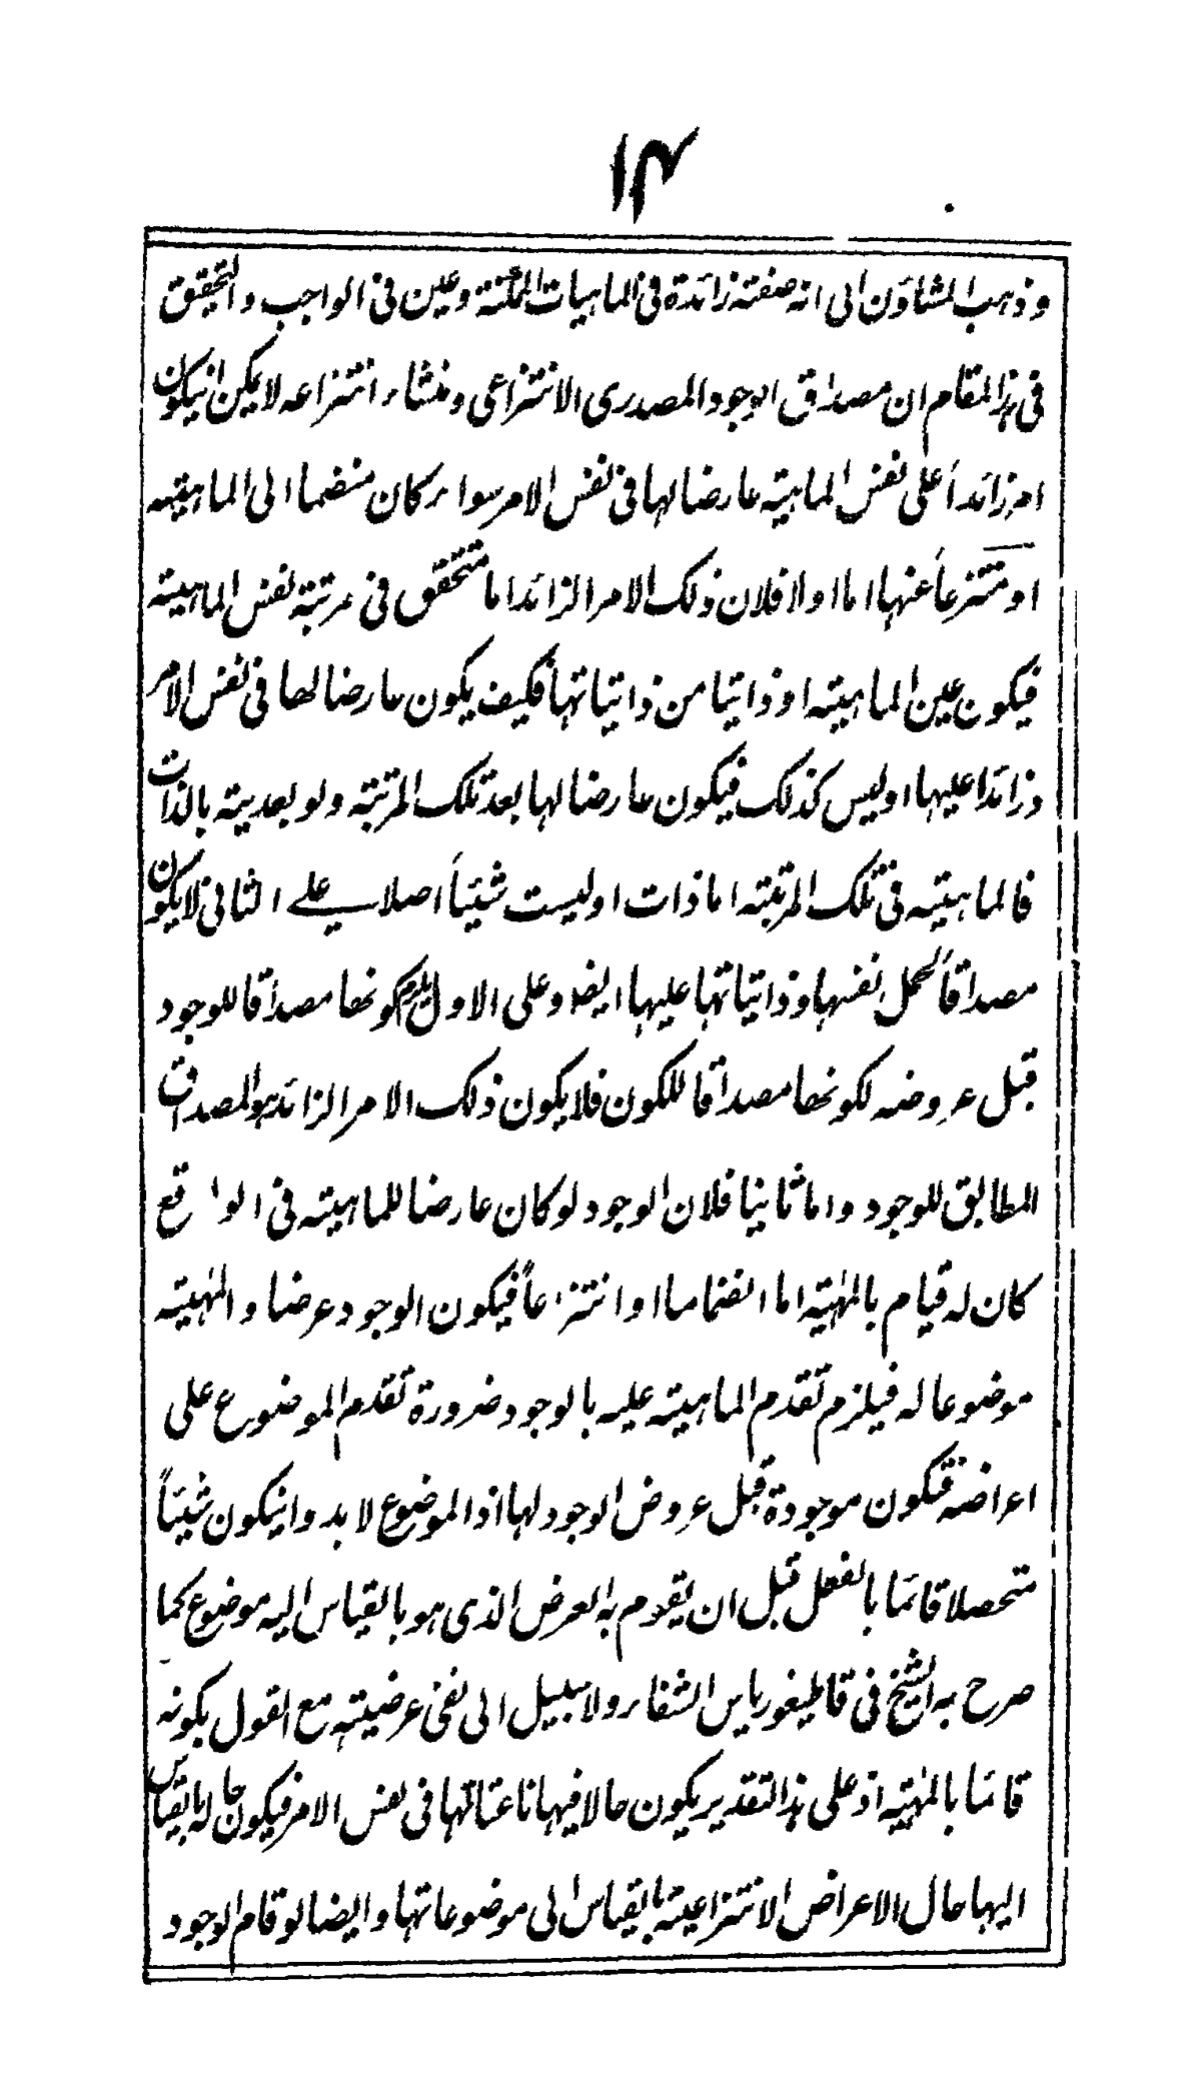 ١٤
وذهب المشاؤن الى انه صفته زائدة فى الماهيات الممكنة وعين فى الواجب والتحقيق
فى هذا المقام ان مصداق الوجود المصدرى الانتزاعى ومنشاء انتزاعه لا يمكن ان يكون
امر زائداً على نفس الماهيته عارضا لها فى نفس الامر سواء كان منضما الى الماهيته
او منتزعاً عنها اما اولا فلان ذلك الامر الزائد اما متحقق فى مرتبة نفس الماهيته
فيكون عين الماهيته او ذاتيا من ذاتياتها فكيف يكون عارضا لها فى نفس الامر
وزائدا عليها او ليس كذلك فيكون عارضا لها بعد تلك المرتبته ولو بعديته بالذات
فالماهيته فى تلك المرتبته اما ذات او ليست شيئاً اصلا سے علے الثانى لا يكون
مصداقاً لحمل نفسها وذاتياتها عليها ايضا وعلى الاول يلزم كونها مصداقا للوجود
قبل عروضه لكونها مصداقا للكون فلا يكون ذلك الامر الزائد هو المصداق
المطابق للوجود واما ثانيا فلان الوجود لو كان عارضا للماهيته فى الواقع
كان له قيام بالمهٰيته اما انضماما او انتزاعاً فيكون الوجود عرضا والمهٰيته
موضوعا له فيلزم تقدم الماهيته عليه بالوجود ضرورة تقدم الموضوع على
اعراضه فتكون موجودة قبل عروض الوجود لها اذ الموضوع لا بد وان يكون شيئاً
متحصلا قائما بالفعل قبل ان يقوم به العرض الذى هو بالقياس اليه موضوع كما
صرح به الشيخ فى قاطيغورياس الشفاء ولا سبيل الى نفى عرضيته مع القول بكونه
قائما بالمهٰيته اذ على هذا التقدير يكون حالا فيها ناعتا لها فى نفس الامر فيكون حاله بالقياس
اليها حال الاعراض الانتزاعيته بالقياس الى موضوعاتها وايضا لو قام الوجود